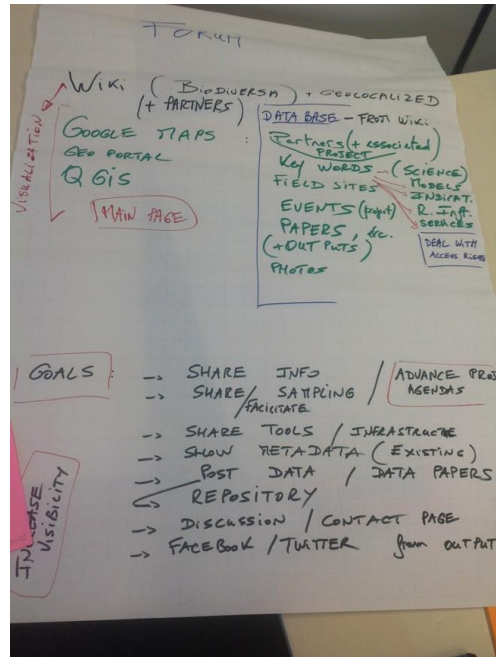 FORUM
WIKI (BIODIVERSA) + GEOLOCALIZED
(+ PARTNERS)
VISUALIZATION
GOOGLE MAPS :
GEO PORTAL
Q GIS
MAIN PAGE
DATA BASE - FROM WIKI:
Partners (+ associated
PROJECT
KEY WORDS - (SCIENCE)
MODELS
FIELD SITES
INDICAT.
EVENTS (project)
R. Inft.
SERVICES
PAPERS, etc.
(+ OUTPUTS)
DEAL WITH
ACCESS RIGHTS
PHOTOS
GOALS :
-> SHARE INFO
-> SHARE / SAMPLING / ADVANCE PROJ
FACILITATE
AGENDAS
-> SHARE TOOLS / INFRASTRUCTE
-> SHOW METADATA (EXISTING)
POST DATA / DATA PAPERS
-> REPOSITORY
-> DISCUSSION / CONTACT PAGE
-> FACEBOOK / TWITTER from OUTPUT
INCREASE
VISIBILITY